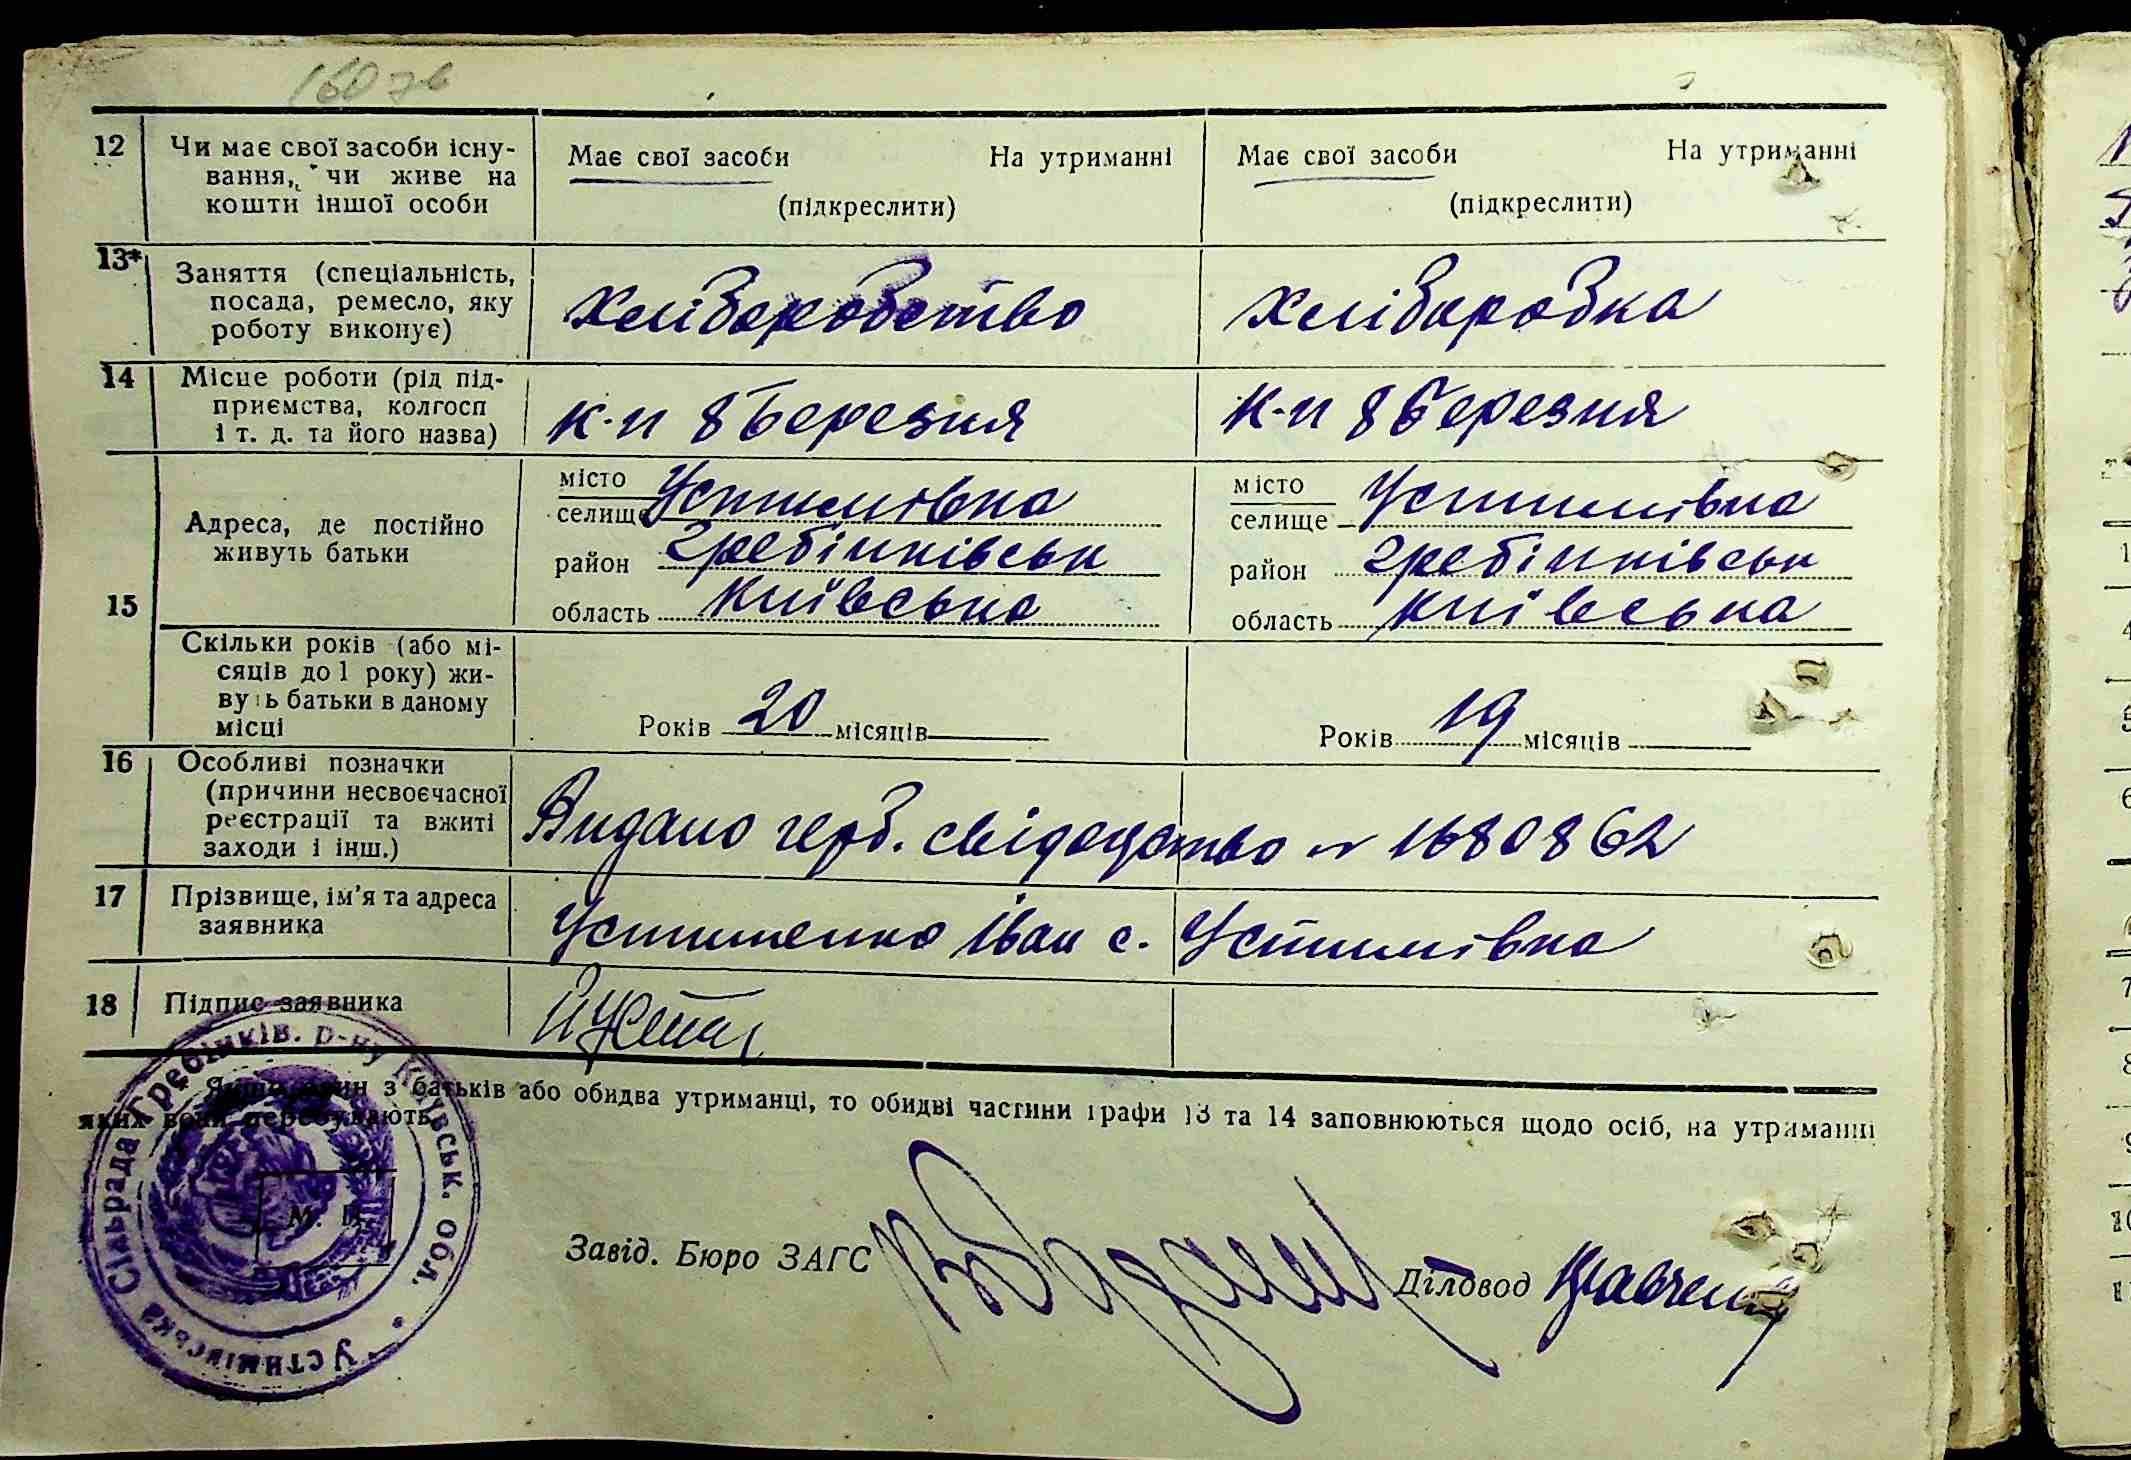 160 зв
12 Чи має свої засоби існування, чи живе на кошти іншої особи
Має свої засоби На утриманні
(підкреслити)
Має свої засоби На утриманні
(підкреслити)
13* Заняття (спеціальність,
посада, ремесло, яку
роботу виконує)
хліборобство
хліборобка
14 Місце роботи (рід під-
приємства, колгосп
і т. д. та його назва)
к-п 8 Березня
к-п 8 Березня
15 Адреса, де постійно
живуть батьки
місто
селище Устимівка
район Гребінківськ
область Київська
місто
селище Устимівка
район Гребінківськ
область Київська
Скільки років (або мі-
сяців до 1 року) жи-
вуть батьки в даному
місці
Років 20 місяців
Років 19 місяців
16 Особливі позначки
(причини несвоєчасної
реєстрації та вжиті
заходи і інш.)
Видано герб. свідоцтво № 1680862
17 Прізвище, ім'я та адреса
заявника
Устименко Іван с. Устимівка
18 Підпис заявника
Якщо один з батьків або обидва утриманці, то обидві частини графи 13 та 14 заповнюються щодо осіб, на утриманні
яких вони перебувають.
Устимівська Сільрада Гребінків. р-ну Київськ. обл.
М. П.
Завід. Бюро ЗАГС
Діловод